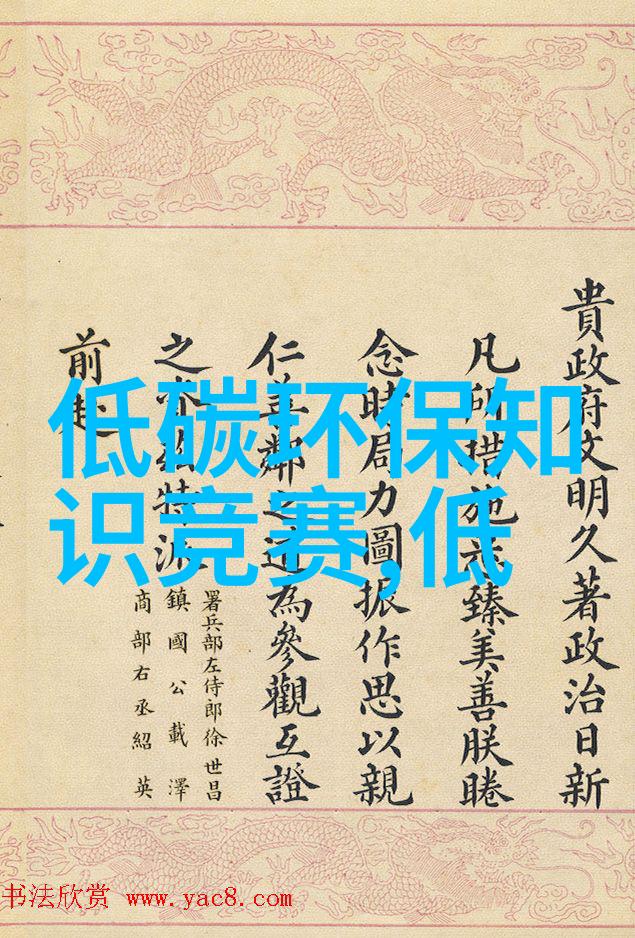 低碳环保知
识竞赛,低
貴政府文明久著政治日新
凡所措施志臻美善朕睠
念時局力圖振作思以親
仁善鄰之道為參觀互證
之茲特派
署兵部左侍郎徐世昌
鎮國公載澤
商部右丞紹英
前赴
书法欣赏 www.yac8.com